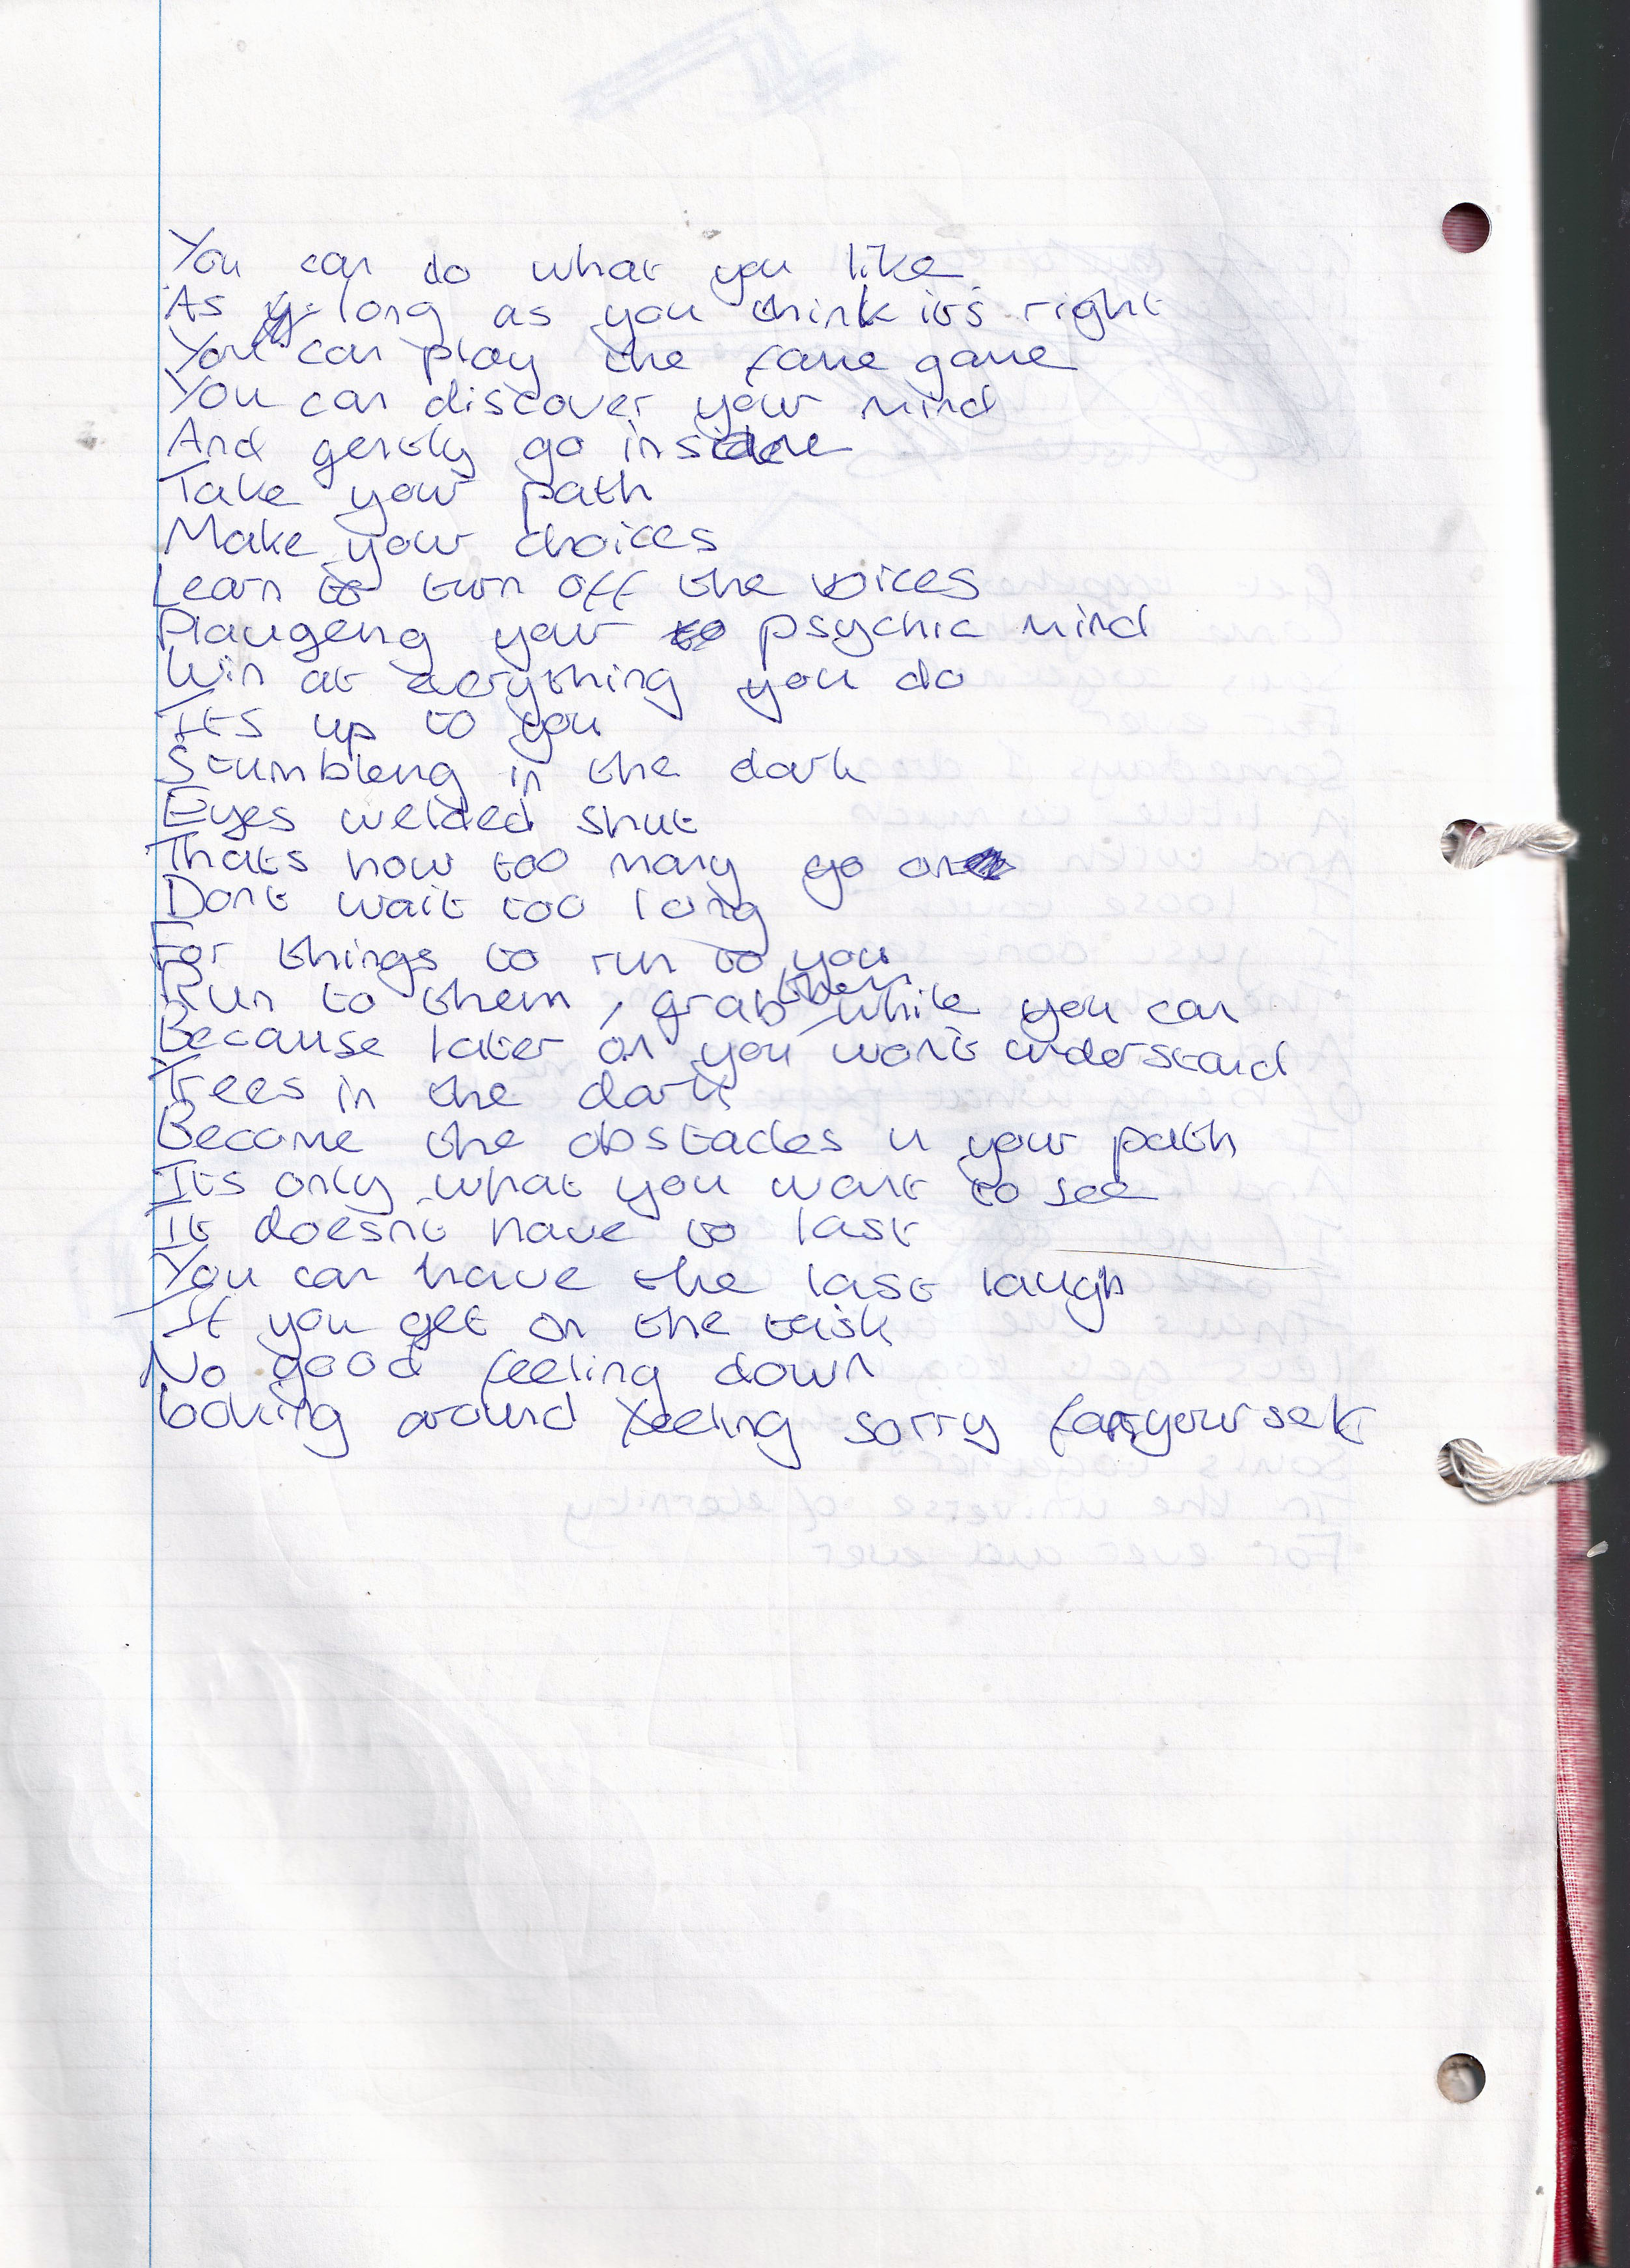 You can do what you like
As long as you think it's right
You can play the fame game
You can discover your mind
And gently go inside
Take your path
Make your choices
Learn to turn off the voices
Plaugeng your psychic mind
Win at everything you do
Its up to you
Stumbleng in the dark
Eyes welded shut
Thats how too many go on
Dont wait too long
For things to run to you
Run to them, grab them while you can
Because later on you won't understand
Trees in the dark
Become the obstacles in your path
Its only what you want to see
It doesn't have to last
You can have the last laugh
If you get on the task
No good feeling down
looking around feeling sorry for yourself